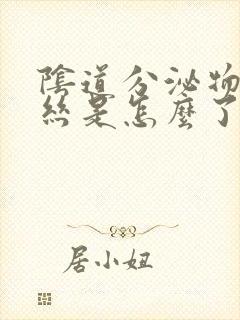 陰道分泌物
絲是怎麼了
居小妞